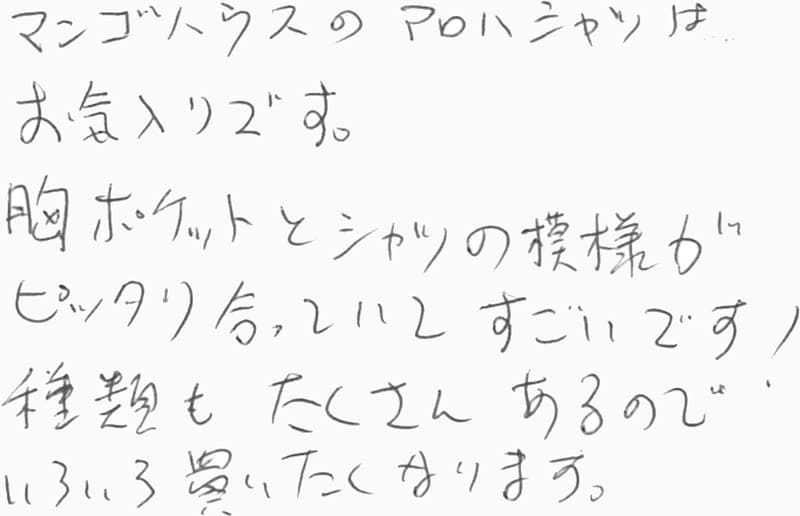 マンゴハウスのアロハシャツは
お気入りです。
胸ポケットとシャツの模様が
ピッタリ合っていてすごいです!
種類もたくさんあるので
いろいろ買いたくなります。